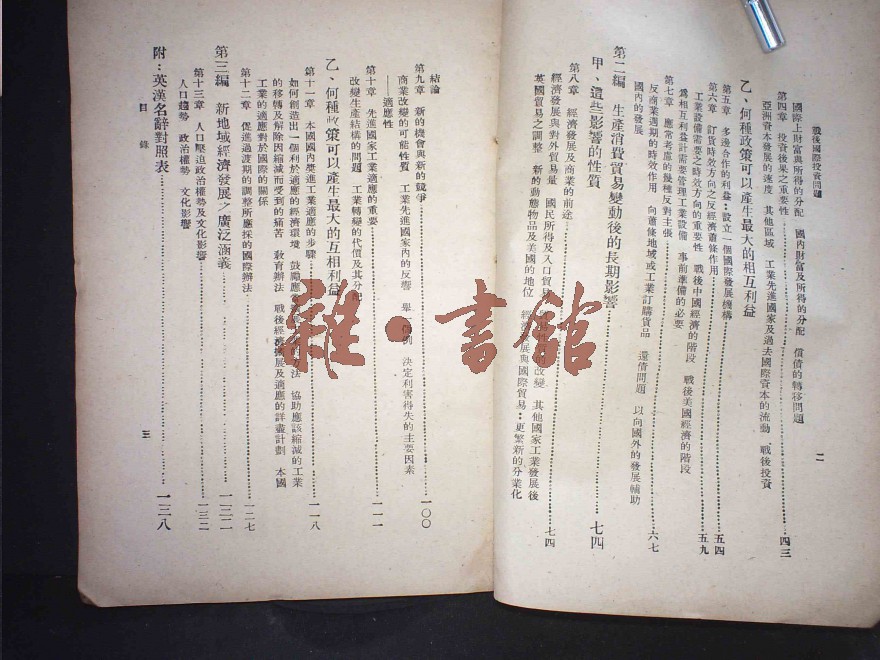 戰後國際投資問題
二
國際上財富與所得的分配　國內財富及所得的分配　償債的轉移問題
第四章　投資後果之重要性……四三
亞洲資本發展的速度　其他區域　工業先進國家及過去國際資本的流動　戰後投資
乙、何種政策可以產生最大的相互利益
第五章　多邊合作的利益：設立一個國際發展機構……五四
第六章　訂貨時效方向之反經濟蕭條作用……五九
工業設備需要之時效方向的重要性　戰後中國經濟的階段　戰後美國經濟的階段
爲相互利益計需要管理工業設備　事前準備的必要
第七章　應常考慮的幾種反對主張……六七
反商業週期的時效作用　向蕭條地域或工業訂購貨品　還債問題　以向國外的發展輔助
國內的發展
第二編　生產消費貿易變動後的長期影響
甲、這些影響的性質……七四
第八章　經濟發展及商業的前途……七四
經濟發展與對外貿易量　國民所得及入口貿易　改變　其他國家工業發展後
英國貿易之調整　新的動態物品及美國的地位　經濟發展與國際貿易：更繁新的分業化
結論
第九章　新的機會與新的競爭……一〇〇
商業改變的可能性質　工業先進國家內的反響　舉一個例　決定利害得失的主要因素
——適應性
第十章　先進國家工業適應的重要……一一一
改變生產結構的問題　工業轉變的代價及其分配
乙、何種政策可以產生最大的互相利益
第十一章　本國國內獎進工業適應的步驟……一一八
如何創造出一個利於適應的經濟環境　鼓勵應　的方法　協助應該縮減的工業
的移轉及解除因縮減而受到的痛苦　教育辦法　戰後經濟擴展及適應的詳盡計劃　本國
工業的適應對於國際的關係
第十二章　促進過渡期的調整所應採的國際辦法……一二七
第三編　新地域經濟發展之廣泛涵義……一三二
第十三章　人口壓迫政治權勢及文化影響……一三二
人口趨勢　政治權勢　文化影響
附：英漢名辭對照表……一三八
目錄
三
雜·書館